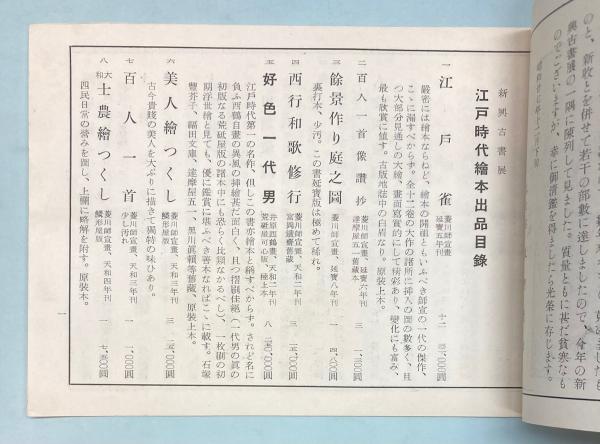 のと、新收とを併せて若干の部數に達しましたので、今年の新
興古書展の一隅に陳列して見ました。質量ともに甚だ貧寒なも
のでございますが、幸に御清鑑を得ましたら光榮に存じます。
新興古書展
江戸時代繪本出品目錄
一 江戸雀 菱川師宣畫 延寶五年刊 十二
嚴密には繪本ならねど、繪本の開祖ともいふべき師宣の一代の傑作、
こゝに漏すべからず。全十二卷の大作の諸所に挿入の圖の數多く、且
つ大部分見通しの大繪、畫面寫實的にして精彩あり、變化にも富み、
最も欣賞に値す。古版地誌中の白眉なり。原裝上本。
二 百人一首像讃抄 菱川師宣畫、延寶六年刊 達摩屋五一舊藏本 三
三 餘景作り庭之圖 菱川師宣畫、延寶八年刊 一
裏打本、少汚。この書延寶版は極めて稀れ。
四 西行和歌修行 菱川師宣畫、天和二年刊 富岡鐵齋舊藏 三
五 好色一代男 井原西鶴畫、天和二年刊 荒砥屋可心版、極上本 八
江戸時代第一の名作、但しこの書亦繪本と稱すべからず。されど名に
負ふ西鶴自畫の異風の挿繪甚だ面白く、且つ摺刷佳絶、一代男の眞の
初版なる荒砥屋版の諸本中にも恐らく比類なかるべし、一枚刷の初
期浮世繪と見ても、優に鑑賞に堪ふべき善本なればこゝに載す。石塚
豐芥子、福田文庫、達摩屋五一、黑川眞賴等舊藏、原裝上本。
六 美人繪つくし 菱川師宣畫、天和三年刊 鱗形屋版 三
古今貴賤の美人を大ぶりに描きて獨特の味ひあり。
七 百人一首 菱川師宣畫、天和三年刊 少し汚れ 一
八 大和 士農繪つくし 菱川師宣畫、天和四年刊 鱗形屋版 一
四民日常の營みを圖し、上欄に略解を附す。原裝本。
一